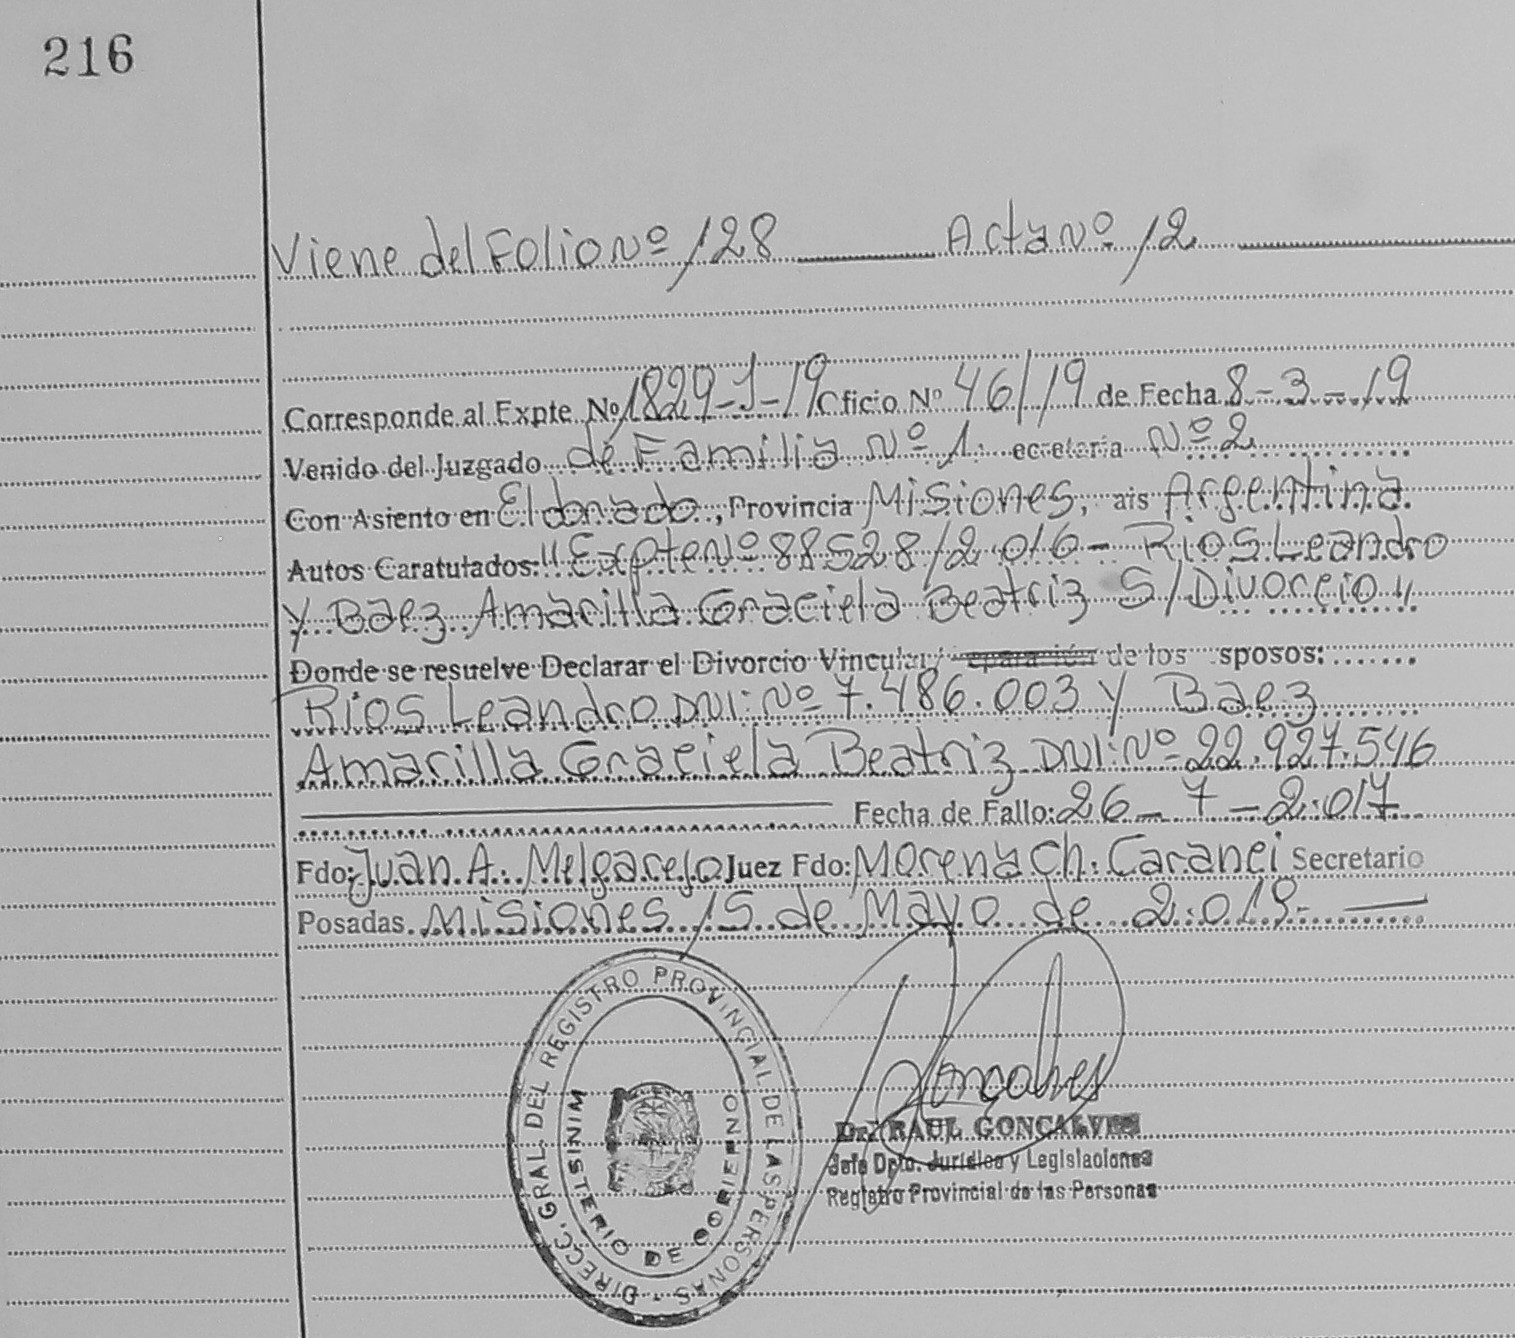 216
Viene del Folio Nº 128 Acta Nº 12
Corresponde al Expte. Nº 1829-J-19 Oficio Nº 46/19 de Fecha 8-3-19
Venido del Juzgado de Familia Nº 1 ecretaria Nº 2
Con Asiento en Eldorado, Provincia Misiones, ais Argentina.
Autos Caratulados: "Expte Nº 88528/2.016- Rios Leandro
y Baez Amarilla Graciela Beatriz S/Divorcio"
Donde se resuelve Declarar el Divorcio Vincular/ eparación de los sposos:
Rios Leandro DNI: Nº 7.486.003 y Baez
Amarilla Graciela Beatriz DNI: Nº 22.927.546
Fecha de Fallo: 26-7-2.017
Fdo: Juan A. Melgarejo Juez Fdo: Morena Ch. Secretario
Posadas. Misiones 15 de Mayo de 2.019.
DIRECC. GRAL. DEL REGISTRO PROVINCIAL DE LAS PERSONAS
MINISTERIO DE GOBIERNO
Gonçalves
Dr. RAUL GONÇALVES
Jefe Dpto. Jurídico y Legislaciones
Registro Provincial de las Personas